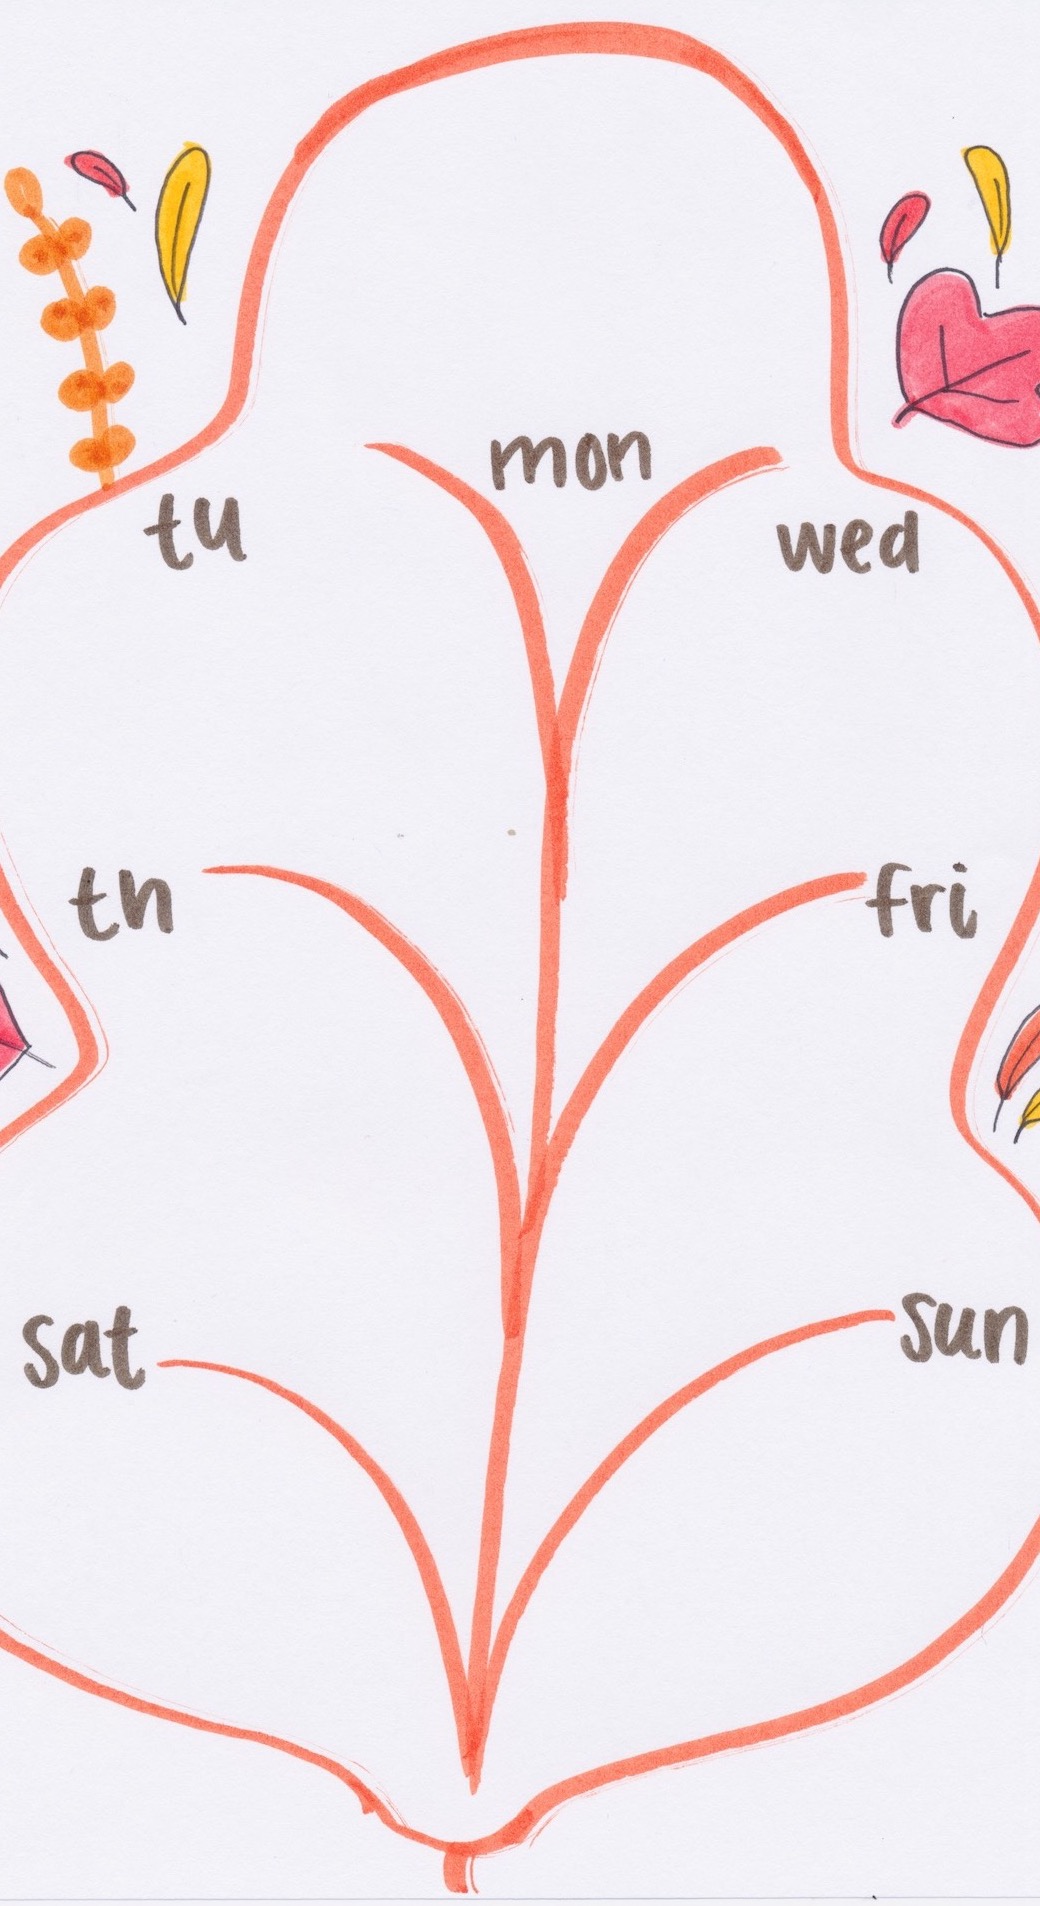 mon
tu
wed
th
fri
sat
sun